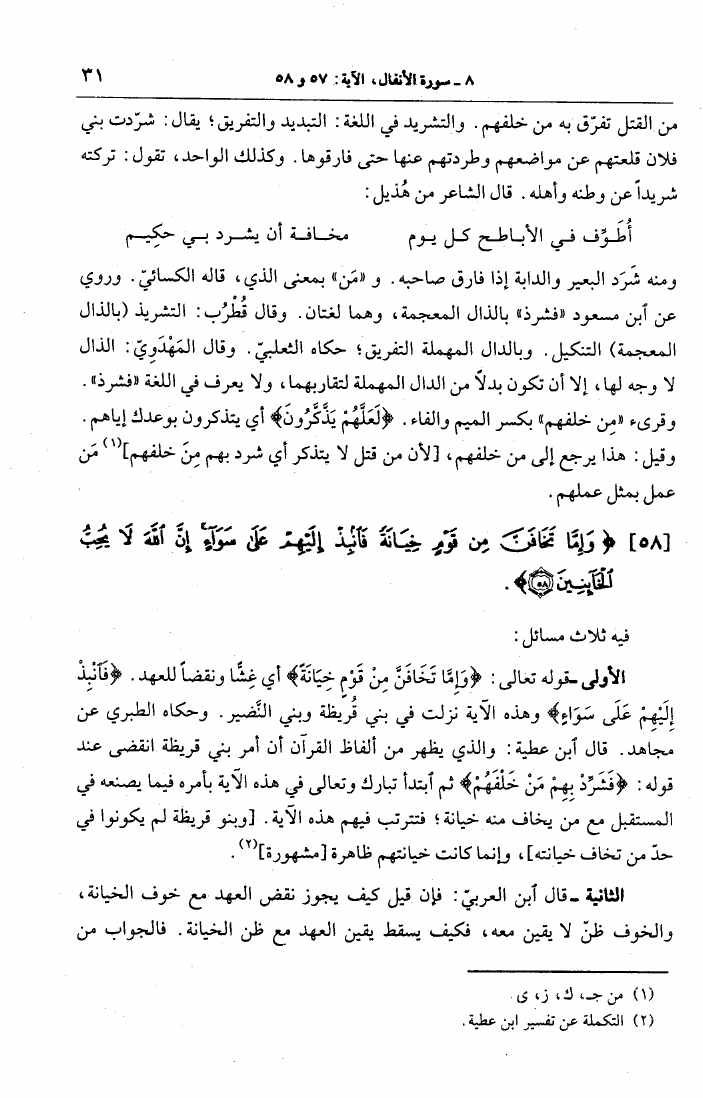 ٨ ـ سورة الأنفال، الآية: ٥٧ و ٥٨
٣١
من القتل تفرّق به من خلفهم. والتشريد في اللغة: التبديد والتفريق؛ يقال: شرّدت بني
فلان قلعتهم عن مواضعهم وطردتهم عنها حتى فارقوها. وكذلك الواحد، تقول: تركته
شريداً عن وطنه وأهله. قال الشاعر من هُذيل:
أُطَـوِّف فـي الأبـاطـح كـل يـوم مخـافـة أن يشـرد بـي حكِيـم
ومنه شَرَد البعير والدابة إذا فارق صاحبه. و «مَن» بمعنى الذي، قاله الكسائيّ. وروي
عن ٱبن مسعود «فشرذ» بالذال المعجمة، وهما لغتان. وقال قُطْرُب: التشريذ (بالذال
المعجمة) التنكيل. وبالدال المهملة التفريق؛ حكاه الثعلبيّ. وقال المَهْدَوِيّ: الذال
لا وجه لها، إلا أن تكون بدلاً من الدال المهملة لتقاربهما، ولا يعرف في اللغة «فشرذ».
وقرىء «مِن خلفهم» بكسر الميم والفاء. ﴿لَعَلَّهُمْ يَذَّكَّرُونَ﴾ أي يتذكرون بوعدك إياهم.
وقيل: هذا يرجع إلى من خلفهم، [لأن من قتل لا يتذكر أي شرد بهم مِنَ خلفهم](١) مَن
عمل بمثل عملهم.
[٥٨] ﴿ وَإِمَّا تَخَافَنَّ مِن قَوْمٍ خِيَانَةً فَٱنۢبِذْ إِلَيْهِمْ عَلَىٰ سَوَآءٍۚ إِنَّ ٱللَّهَ لَا يُحِبُّ
ٱلْخَآئِنِينَ ۝٥٨﴾.
فيه ثلاث مسائل:
الأولى ـ قوله تعالى: ﴿وَإِمَّا تَخَافَنَّ مِنْ قَوْمٍ خِيَانَةً﴾ أي غِشًّا ونقضاً للعهد. ﴿فَٱنْبِذْ
إِلَيْهِمْ عَلَى سَوَاءٍ﴾ وهذه الآية نزلت في بني قُريظة وبني النَّضير. وحكاه الطبري عن
مجاهد. قال ٱبن عطية: والذي يظهر من ألفاظ القرآن أن أمر بني قريظة انقضى عند
قوله: ﴿فَشَرِّدْ بِهِمْ مَنْ خَلْفَهُمْ﴾ ثم ٱبتدأ تبارك وتعالى في هذه الآية بأمره فيما يصنعه في
المستقبل مع من يخاف منه خيانة؛ فتترتب فيهم هذه الآية. [وبنو قريظة لم يكونوا في
حدّ من تخاف خيانته]، وإنما كانت خيانتهم ظاهرة [مشهورة](٢).
الثانية ـ قال ٱبن العربيّ: فإن قيل كيف يجوز نقض العهد مع خوف الخيانة،
والخوف ظنّ لا يقين معه، فكيف يسقط يقين العهد مع ظن الخيانة. فالجواب من
(١) من جـ، ك، ز، ى.
(٢) التكملة عن تفسير ابن عطية.